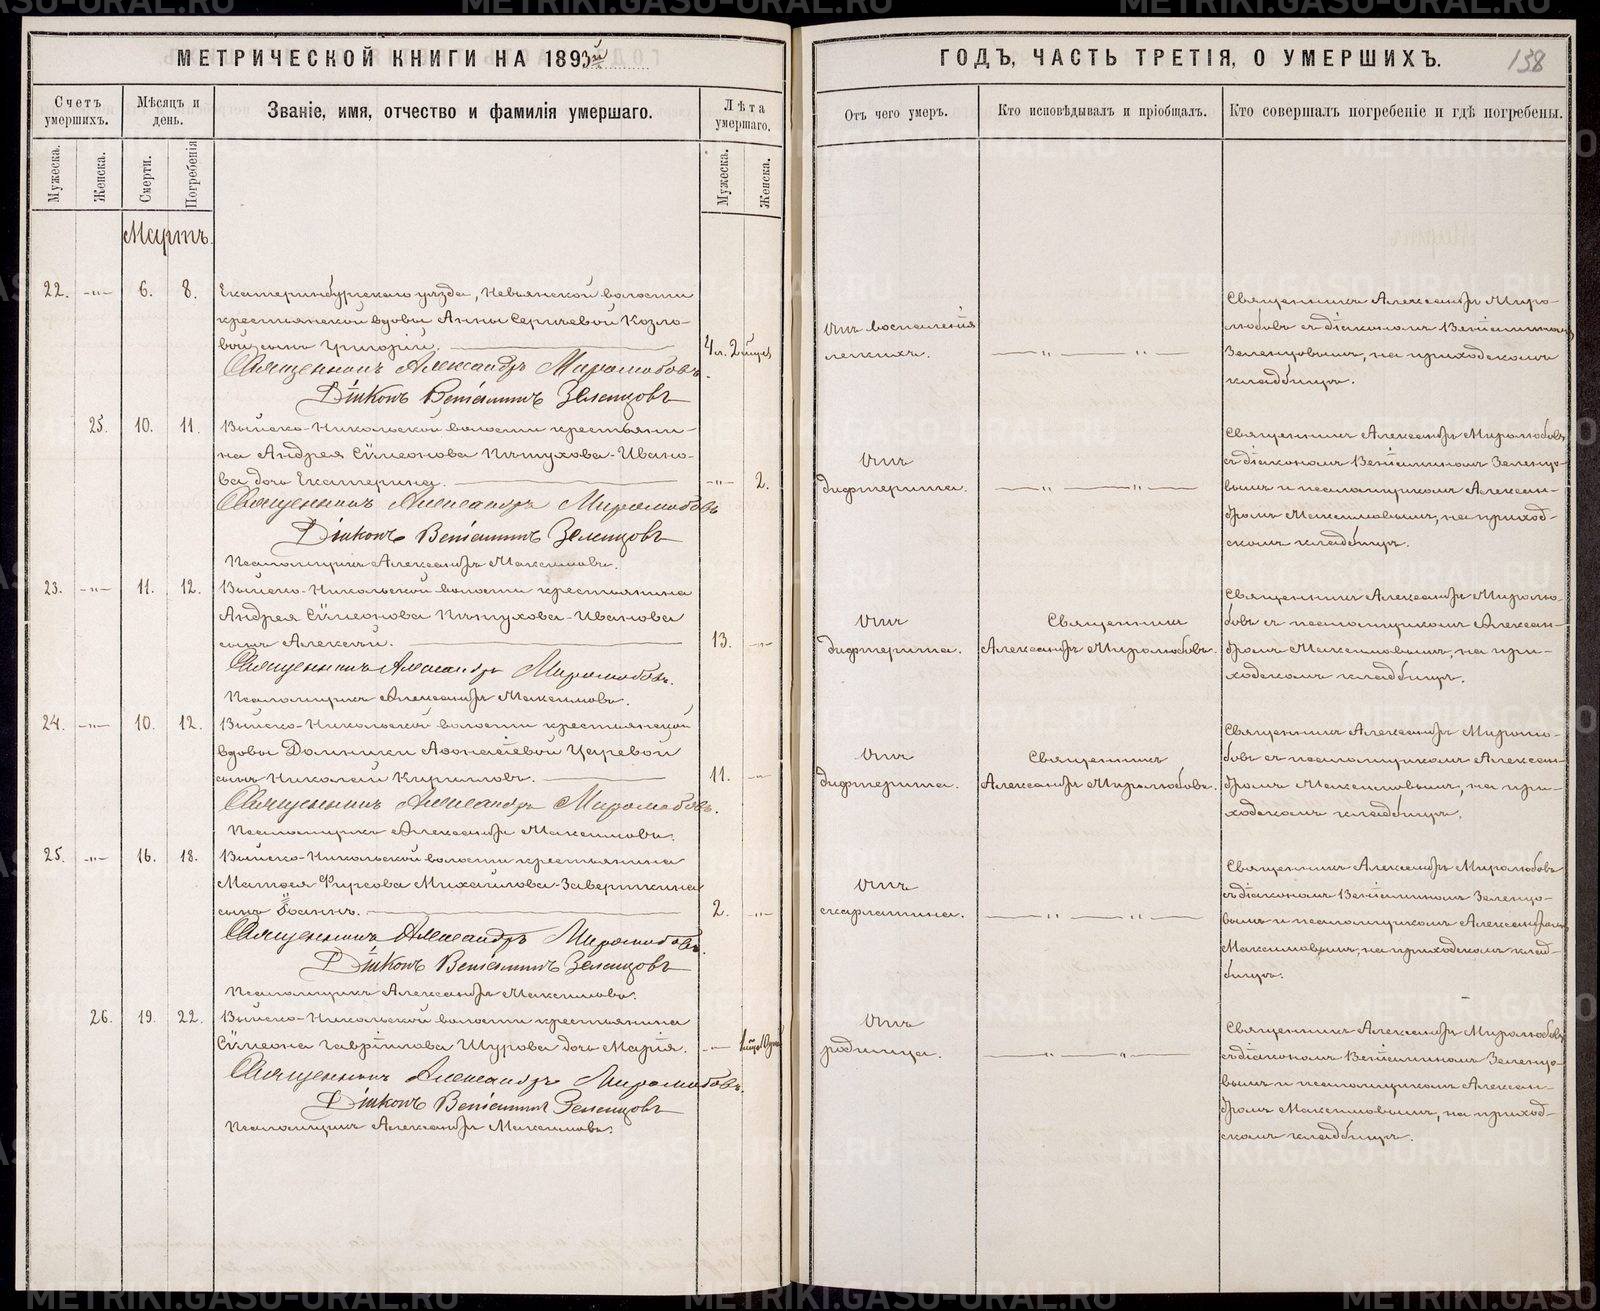 МЕТРИЧЕСКОЙ КНИГИ НА 1893й
ГОДЪ, ЧАСТЬ ТРЕТІЯ, О УМЕРШИХЪ.
158
Счетъ умершихъ.
Мѣсяцъ и день.
Званіе, имя, отчество и фамилія умершаго.
Лѣта умершаго.
Отъ чего умеръ.
Кто исповѣдывалъ и пріобщалъ.
Кто совершалъ погребеніе и гдѣ погребены.
Мужеска.
Женска.
Смерти.
Погребенія
Мужеска.
Женска.
Мартъ.
22. -„- 6. 8.
Екатеринбургскаго уѣзда, Невьянской волости
крестьянской вдовы Анны Сергіевой Козло-
вой сынъ Григорій.
4 л. 2 мѣсяц
Священникъ Александръ Миролюбовъ.
Діаконъ Веніаминъ Зеленцовъ
Отъ воспаленія
легкихъ.
Священникъ Александръ Миро-
любовъ съ діакономъ Веніаминомъ
Зеленцовымъ, на приходскомъ
кладбищѣ.
25. 10. 11.
Выйско-Никольской волости крестьяни-
на Андрея Сѵмеонова Пѣтухова-Ивано-
ва дочь Екатерина.
-„- 2.
Священникъ Александръ Миролюбовъ
Діаконъ Веніаминъ Зеленцовъ
Псаломщикъ Александръ Максимовъ.
Отъ
дифтерита.
Священникъ Александръ Миролюбовъ
съ діакономъ Веніаминомъ Зеленцо-
вымъ и псаломщикомъ Алексан-
дромъ Максимовымъ, на приход-
скомъ кладбищѣ.
23. -„- 11. 12.
Выйско-Никольской волости крестьянина
Андрея Сѵмеонова Пѣтухова-Иванова
сынъ Алексѣй.
13. -„-
Священникъ Александръ Миролюбовъ.
Псаломщикъ Александръ Максимовъ.
Отъ
дифтерита.
Священникъ
Александръ Миролюбовъ.
Священникъ Александръ Миролю-
бовъ съ псаломщикомъ Алексан-
дромъ Максимовымъ, на при-
ходскомъ кладбищѣ.
24. -„- 10. 12.
Выйско-Никольской волости крестьянской
вдовы Домники Аѳонасіевой Царевой
сынъ Николай Кириловъ.
11. -„-
Священникъ Александръ Миролюбовъ.
Псаломщикъ Александръ Максимовъ.
Отъ
дифтерита.
Священникъ
Александръ Миролюбовъ.
Священникъ Александръ Миролю-
бовъ съ псаломщикомъ Алексан-
дромъ Максимовымъ, на при-
ходскомъ кладбищѣ.
25. -„- 16. 18.
Выйско-Никольской волости крестьянина
Матѳея Фирсова Михайлова-Заверткина
сынъ Іоаннъ.
2. -„-
Священникъ Александръ Миролюбовъ.
Діаконъ Веніаминъ Зеленцовъ
Псаломщикъ Александръ Максимовъ.
Отъ
скарлатина.
Священникъ Александръ Миролюбовъ
съ діакономъ Веніаминомъ Зеленцо-
вымъ и псаломщикомъ Александромъ
Максимовымъ, на приходскомъ клад-
бищѣ.
26. 19. 22.
Выйско-Никольской волости крестьянина
Сѵмеона Гавріилова Шурова дочь Марія.
Священникъ Александръ Миролюбовъ.
Діаконъ Веніаминъ Зеленцовъ
Псаломщикъ Александръ Максимовъ.
Отъ
родимца.
Священникъ Александръ Миролюбовъ
съ діакономъ Веніаминомъ Зеленцо-
вымъ и псаломщикомъ Алексан-
дромъ Максимовымъ, на приход-
скомъ кладбищѣ.
METRIKI.GASO-URAL.RU